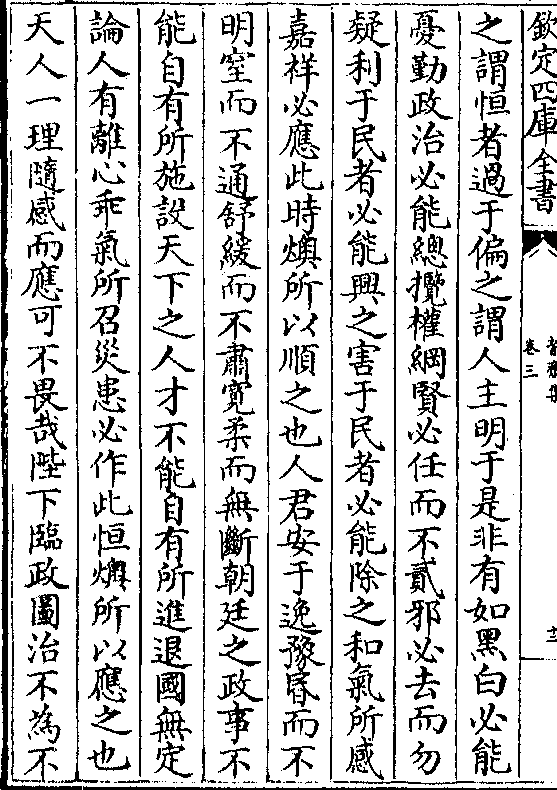 欽定四庫全書
卷三
之謂恒者過于偏之謂人主明于是非有如黑白必能
憂勤政治必能總攬權綱賢必任而不貳邪必去而勿
疑利于民者必能興之害于民者必能除之和氣所感
嘉祥必應此時燠所以順之也人君安于逸豫昏而不
明窒而不通舒緩而不肅寛柔而無斷朝廷之政事不
能自有所施設天下之人才不能自有所進退國無定
論人有離心乖氣所召災患必作此恒燠所以應之也
天人一理隨感而應可不畏哉陛下臨政圖治不為不